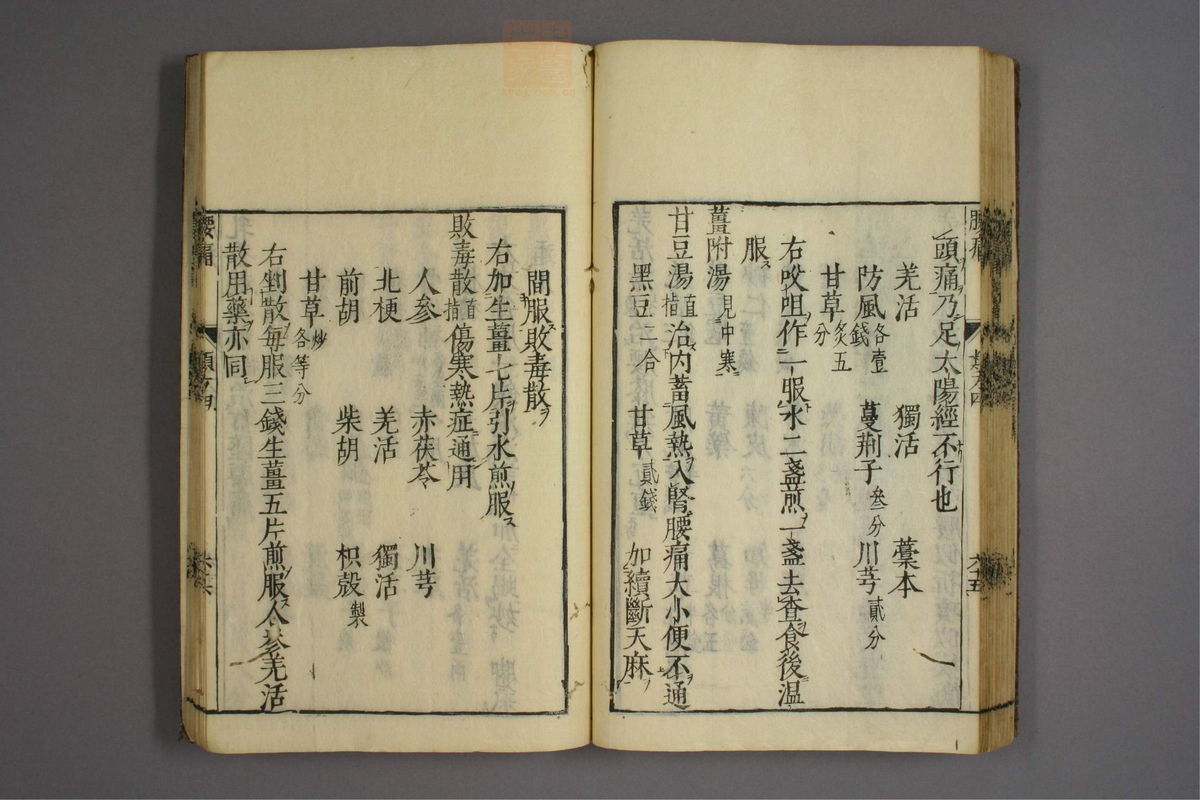 腰痛
頭痛乃足太陽經不行也
羌活 獨活 藁本
防風各壹錢 蔓荊子叁分 川芎貳分
甘草炙五分
右㕮咀作一服水二盞煎一盞去查食後温
服
薑附湯見中寒
甘豆湯直指治内蓄風熱入腎腰痛大小便不通
黑豆二合 甘草貳錢 加續斷天麻
間服敗毒散
右加生薑七片引水煎服
敗毒散直指傷寒熱症通用
人參 赤茯苓 川芎
北梗 羌活 獨活
前胡 柴胡 枳殻製
甘草炒各等分
右剉散每服三錢生薑五片煎服人參羌活
散用藥亦同
腰痛